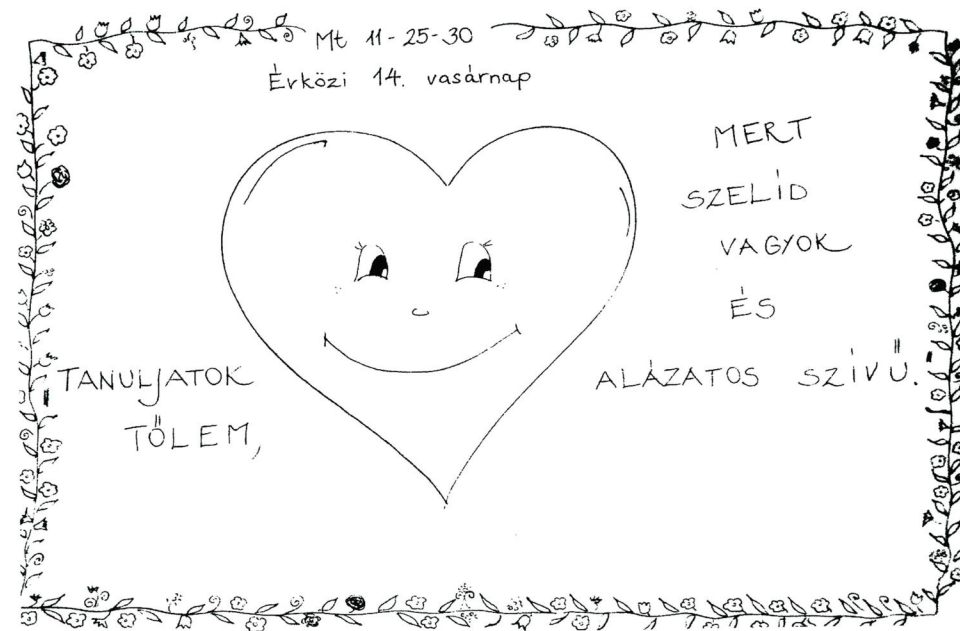 Mt 11-25-30
Évközi 14. vasárnap
TANULJATOK
TŐLEM,
MERT
SZELÍD
VAGYOK
ÉS
ALÁZATOS SZÍVŰ.